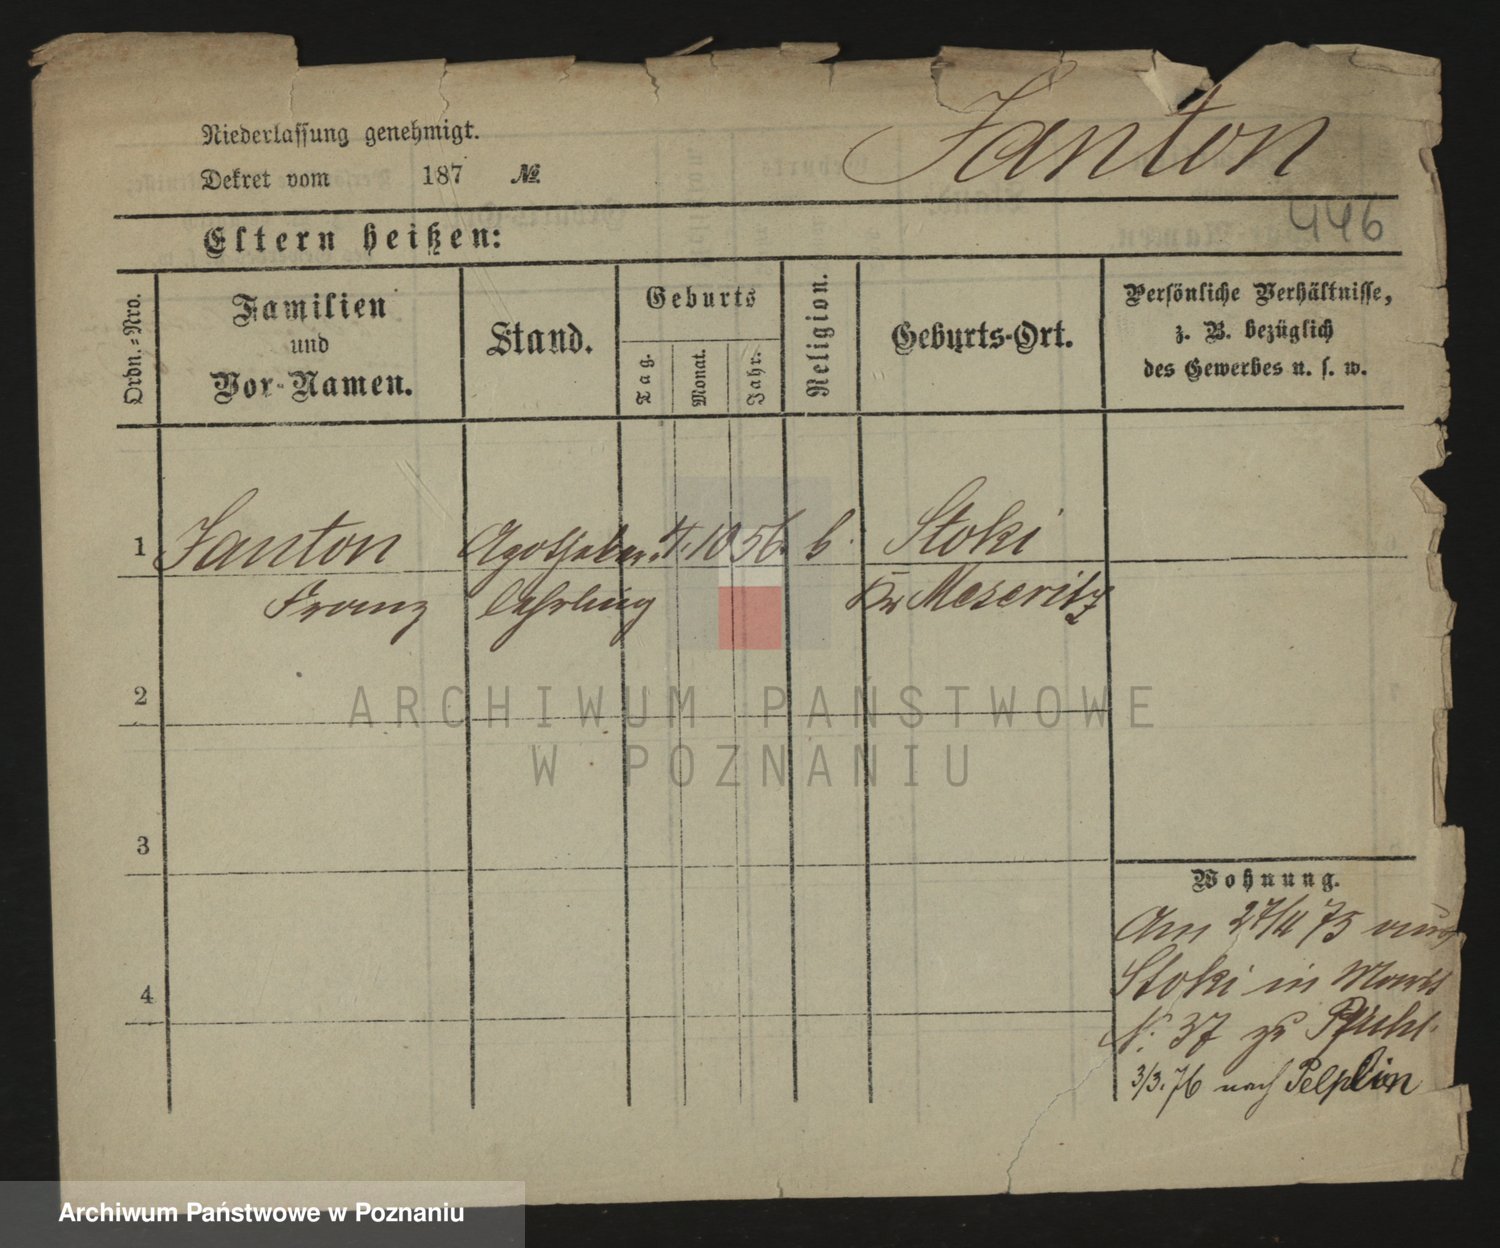 Niederlassung genehmigt.
Dekret vom 187 №
Fanton
446
Eltern heißen:
Ordn.-Nro.
Familien und Vor-Namen.
Stand.
Geburts
Tag.
Monat.
Jahr.
Religion.
Geburts-Ort.
Persönliche Verhältnisse,
z. B. bezüglich
des Gewerbes u. s. w.
1 Fanton Apotheker 10 56. k. Stoki
Franz lehrling Kr Meseritz
2
3
4
Wohnung.
Am 27/11 75 aus
Stoki in Markt
N: 37 zu
3/3.76 nach Pelplin
ARCHIWUM PAŃSTWOWE
W POZNANIU
Archiwum Państwowe w Poznaniu